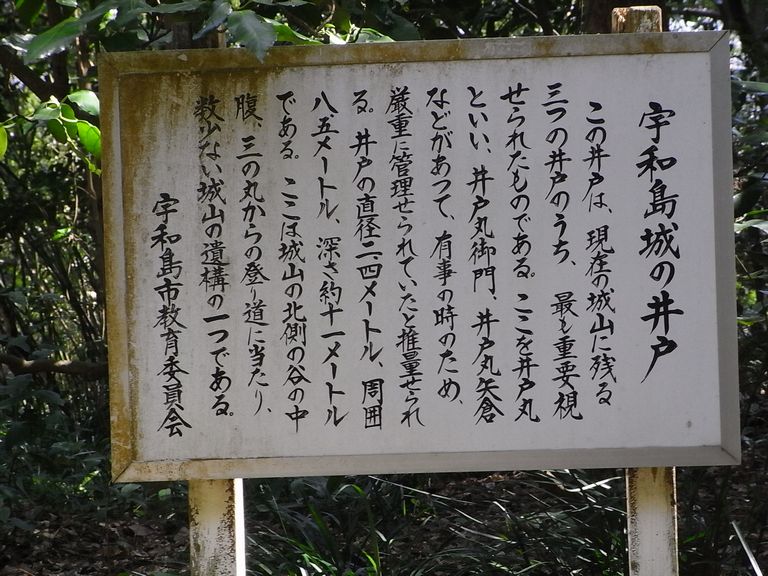 宇和島城の井戸
この井戸は、現在の城山に残る
三つの井戸のうち、最も重要視
せられたものである。ここを井戸丸
といい、井戸丸御門、井戸丸矢倉
などがあつて、有事の時のため、
厳重に管理せられていたと推量せられ
る。井戸の直径二.四メートル、周囲
八.五メートル、深さ約十一メートル
である。ここは城山の北側の谷の中
腹、三の丸からの登り道に当たり、
数少ない城山の遺構の一つである。
宇和島市教育委員会